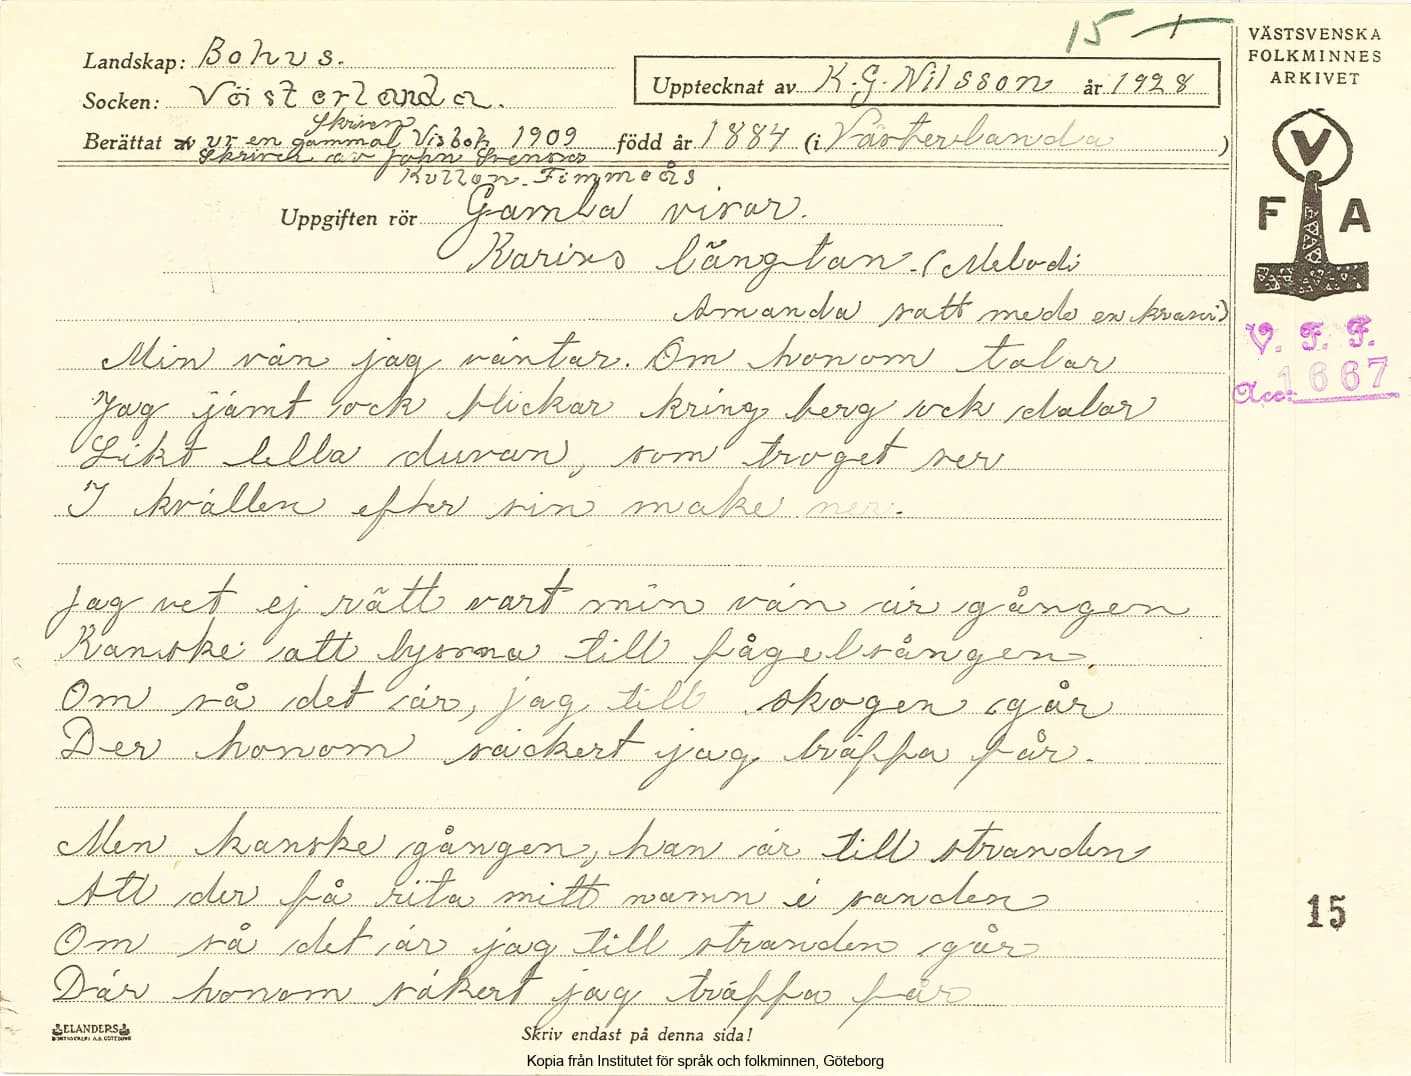 15 +
Landskap: Bohus.
Socken: Västerlanda.
Upptecknat av K. G. Nilsson år 1928
Skriven
Berättat av ur en gammal Visbok 1909 född år 1884 (i Västerlanda)
Skriven av John Svenson
Kullen. Timmeås
Uppgiften rör Gamla visor.
Karins längtan. (Melodi
Amanda satt med en krans)
Min vän jag väntar. Om honom talar
Jag jämt ock blickar kring berg ock dalar
Likt lilla duvan, som troget ser
I kvällen efter sin make ner.
Jag vet ej rätt vart min vän är gången
Kanske att lyssna till fågelsången.
Om så det är, jag till skogen går
Der honom säckert jag träffa får.
Men kanske gången, han är till stranden
Att der få rita mitt namn i sanden
Om så det är jag till stranden går
Där honom säkert jag träffa får
ELANDERS
Skriv endast på denna sida!
Kopia från Institutet för språk och folkminnen, Göteborg
VÄSTSVENSKA
FOLKMINNES
ARKIVET
V
F A
V. F. F.
Acc: 1667
15